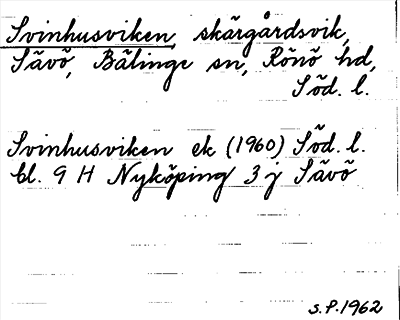 Svinhusviken, skärgårdsvik,
Sävö, Bälinge sn, Rönö hd,
Söd. l.
Svinhusviken ek (1960) Söd. l.
bl. 9 H Nyköping 3 j Sävö
S.P. 1962